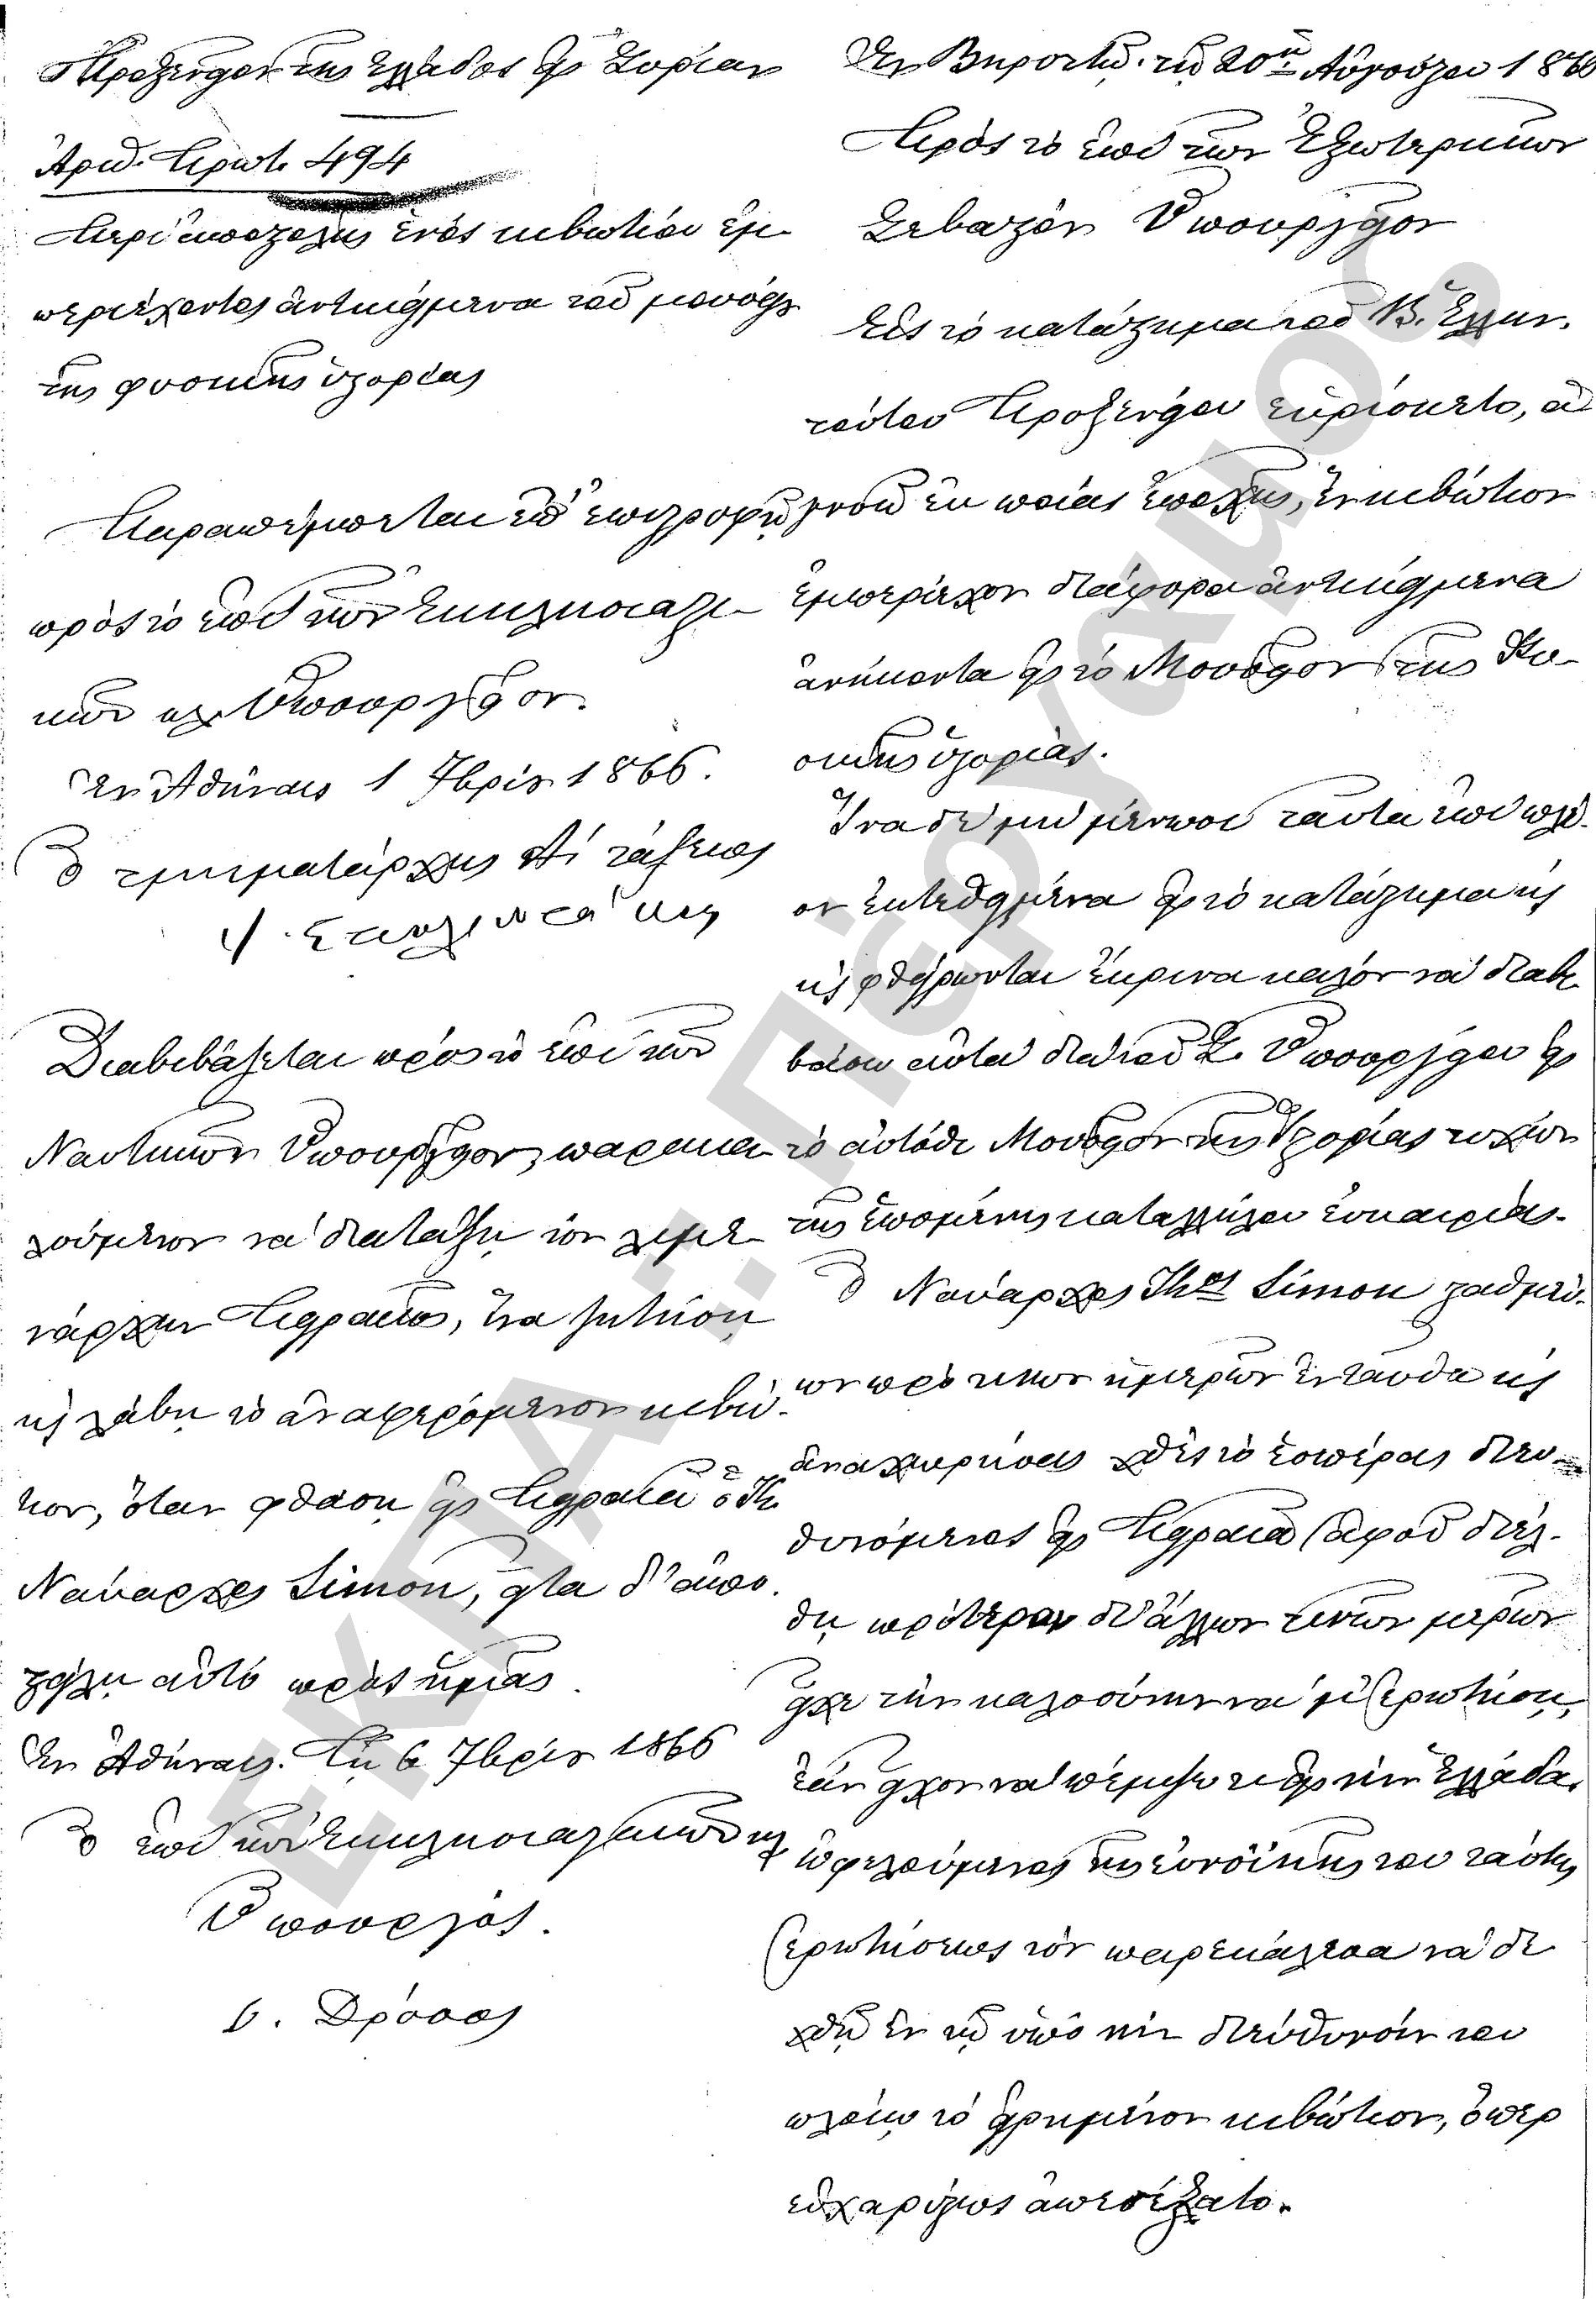 Προξενεῖον τῆς Ἑλλάδος εἰς Συρίαν
Ἀριθ. Πρωτ. 494
Περὶ ἀποστολῆς ἑνὸς κιβωτίου ἐμ-
περιέχοντος ἀντικείμενα τοῦ μουσείου
τῆς φυσικῆς ἱστορίας
Παραπέμπεται ἐπ' ἐπιστροφῇ
πρὸς τὸ ἐπὶ τῶν Ἐκκλησιαστι-
κῶν κλ. Ὑπουργεῖον.
Ἐν Ἀθήναις 1 7βρίου 1866.
Ὁ τμηματάρχης Α' τάξεως
Διαβιβάζεται πρὸς τὸ ἐπὶ τῶν
Ναυτικῶν Ὑπουργεῖον, παρακα-
λούμενον νὰ διατάξῃ τὸν λιμε-
νάρχην Πειραιῶς, ἵνα ζητήσῃ
κ λάβῃ τὸ ἀναφερόμενον κιβώ-
τιον, ὅταν φθάσῃ εἰς Πειραιᾶ ὁ κ.
Ναύαρχος Simon, εἶτα δ' ἀπο-
στείλῃ αὐτὸ πρὸς ἡμᾶς.
Ἐν Ἀθήναις. Τῇ 6 7βρίου 1866
Ὁ ἐπὶ τῶν Ἐκκλησιαστικῶν κλ
Ὑπουργός.
Δ. Δρόσος
Ἐν Βηρουτῷ. τῇ 20ῃ Αὐγούστου 1866
Πρὸς τὸ ἐπὶ τῶν Ἐξωτερικῶν
Σεβαστὸν Ὑπουργεῖον
Εἰς τὸ κατάστημα τοῦ Β. Ἑλλην.
τούτου Προξενείου εὑρίσκετο, ἀ-
γνοῶ ἐκ ποίας ἐποχῆς, ἓν κιβώτιον
ἐμπεριέχον διάφορα ἀντικείμενα
ἀνήκοντα εἰς τὸ Μουσεῖον τῆς Φυ-
σικῆς ἱστορίας.
Ἵνα δὲ μὴ μένωσι ταῦτα ἐπὶ πλέ-
ον ἐκτεθειμένα εἰς τὸ κατάστημα κ
κ φθείρωνται ἔκρινα καλὸν νὰ διαβι-
βάσω αὐτὰ διὰ τοῦ Σ. Ὑπουργείου εἰς
τὸ αὐτόθι Μουσεῖον τῆς Ἱστορίας τυχὼν
τῆς ἑπομένης καταλλήλου εὐκαιρίας.
Ὁ Ναύαρχος Simon σταθμεύ-
ων πρό τινων ἡμερῶν ἐνταῦθα κ
ἀναχωρήσας χθὲς τὸ ἑσπέρας διευ-
θυνόμενος εἰς Πειραιᾶ (ἀφοῦ διέλ-
θῃ πρότερον δι' ἄλλων τινῶν μερῶν)
εἶχε τὴν καλοσύνην νὰ μὲ ἐρωτήσῃ,
ἐὰν εἶχον νὰ πέμψω τι εἰς τὴν Ἑλλάδα,
ὠφελούμενος τῆς εὐνοϊκῆς του ταύτης
ἐρωτήσεως τὸν παρεκάλεσα νὰ δε-
χθῇ ἐν τῷ ὑπὸ τὴν διεύθυνσίν του
πλοίῳ τὸ εἰρημένον κιβώτιον, ὅπερ
εὐχαρίστως ἀπεδέξατο.
ΕΚΠΑ : ΠέΡΓΑΜΟΣ